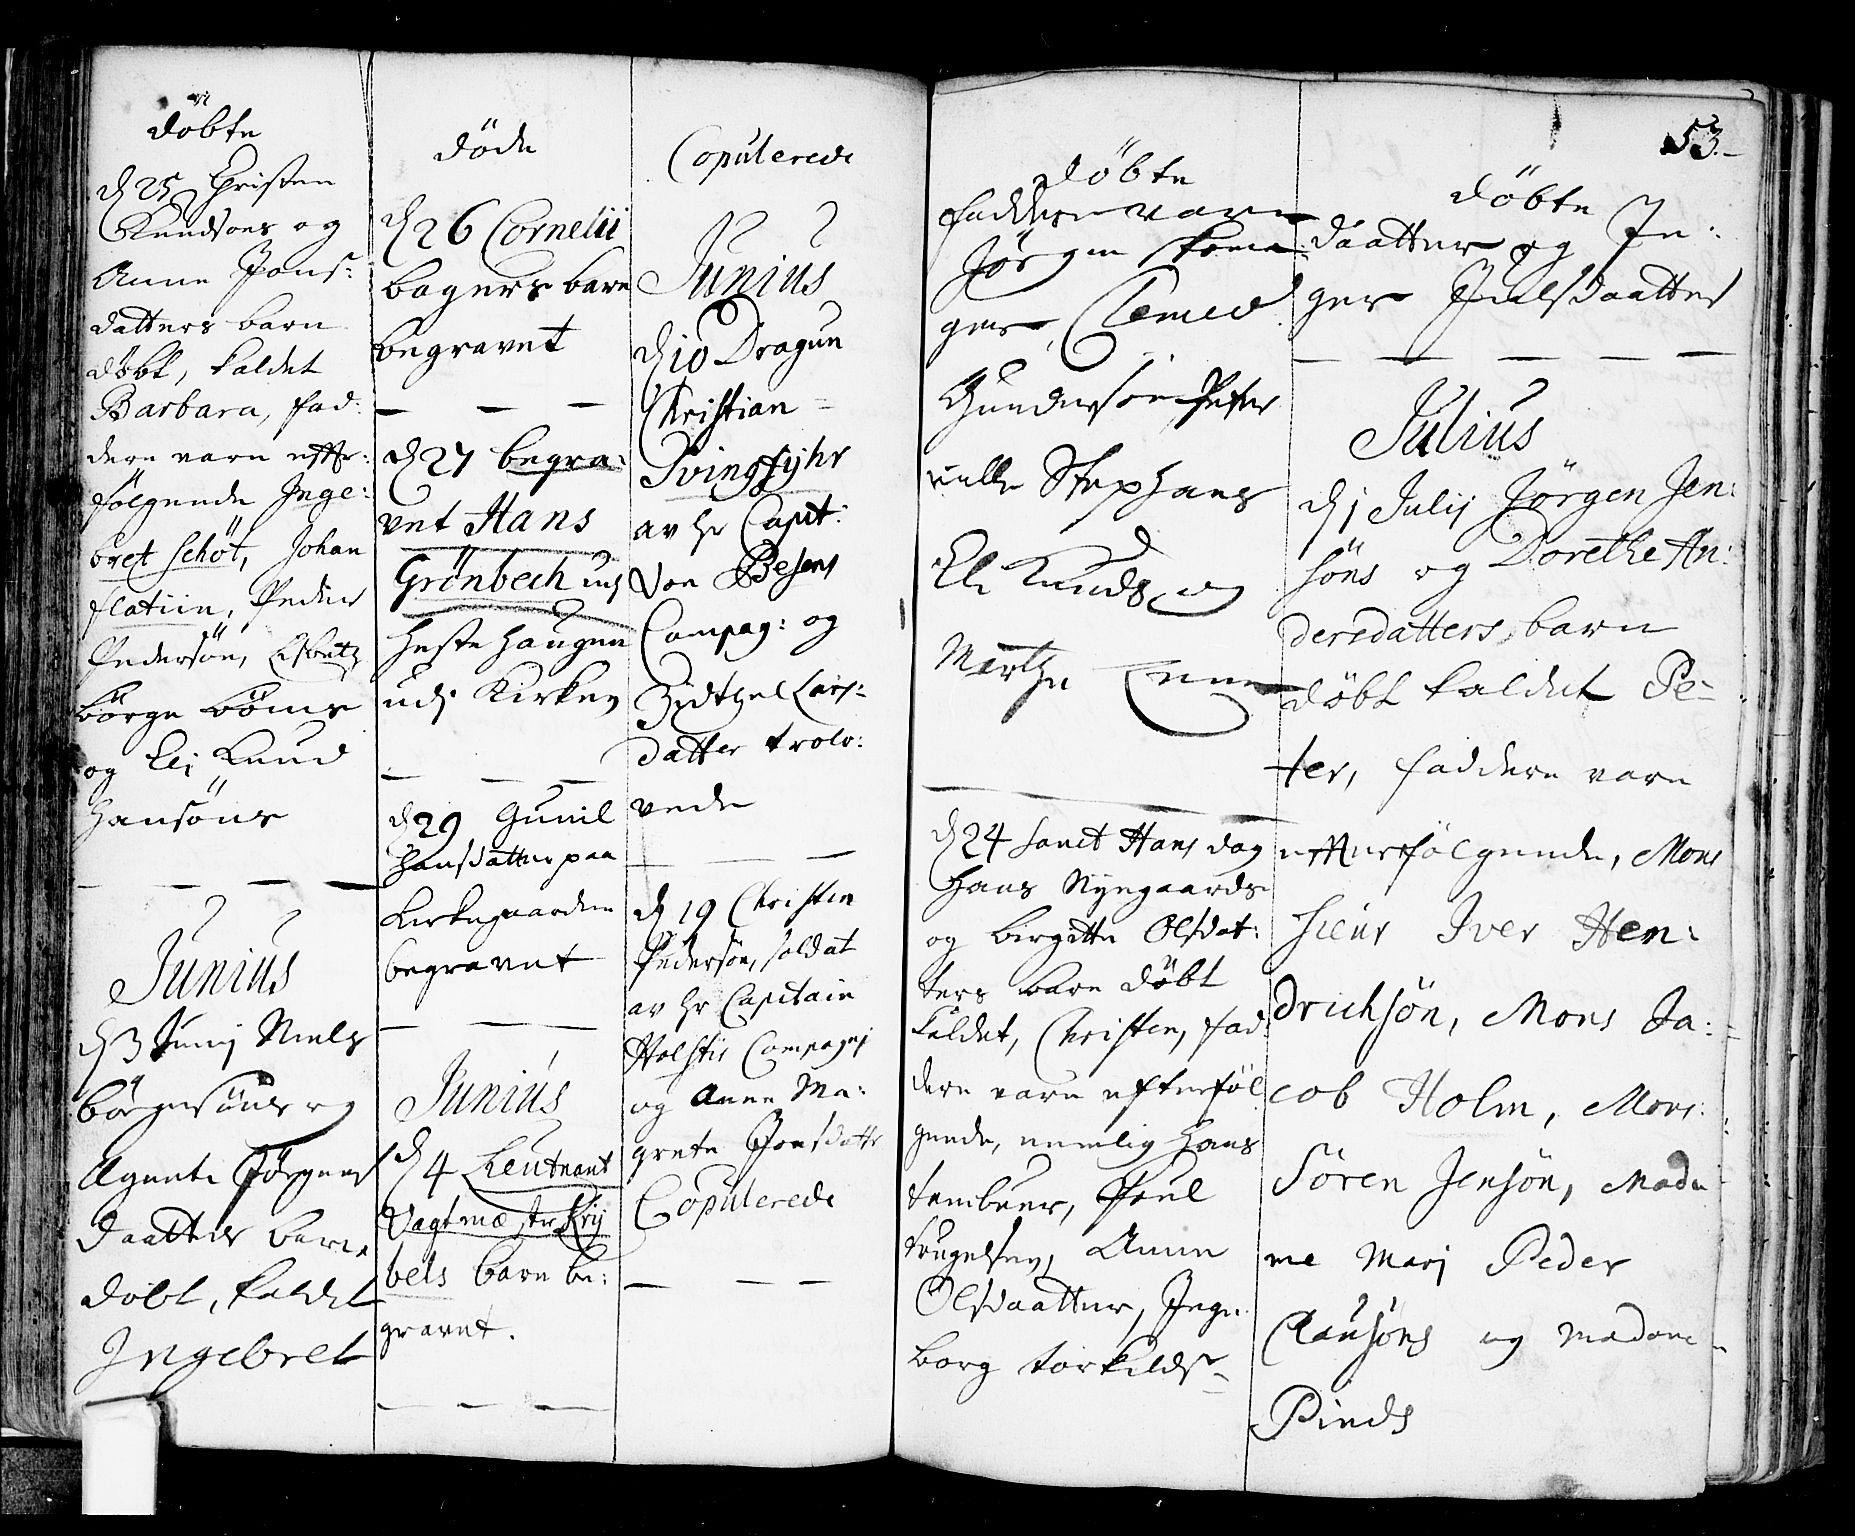 döbte
d 25 Christen
Knudsøns og
Anne Jons:
datters barn
döbt, kaldet
Barbara, fad:
dere vare effter:
fölgende Inge:
bret Schöt, Johan
Flatiin, Peder
Pedersön, Lisbeth
Börge Böms
og Eli Knud
Hansöns
Junius
d 3 Junij Niels
Börgesöns og
Agnete Jörgens
daatters barn
döbt, kaldet
Ingebret
döde
d 26 Cornelii
bagers barn
begravet
d 27 begra:
vet Hans
Grönbech
Hestehaugen
udj Kirken
d 29 Gunil
Hansdatter paa
Kirkegaarden
begravet
Junius
d 4 Leutnant
Vagtmæster Krij
bels barn be:
gravet.
Copulerede
Junius
d 10 Dragun
Christian
Svingfyhr
av hr Capit:
von Besens
Compag: og
Lars:
datter trolo:
vede
d 19 Christen
Pedersön, soldat
av hr Capitain
Holstis Compagnj
og Anne Ma:
grete Jonsdatter
Copulerede
döbte
faddere vare
Jörgen
ger,
Gundersön Peter
Stephans
Eli Knuds og
Marthe
d 24 Sanct Hans dag
Hans Nyegaards
og Birgitte Olsdat:
ters barn döbt
kaldet, Christen, fad:
dere vare efterföl
gende, nemlig Hans
tambuur, Poul
Anne
Olsdaatter, Inge:
borg Torkilds
53.
döbte
daatter og In:
ger Povlsdaatter
Julius
d 1 Julij Jörgen Jen:
söns og Dorethe An:
dersdatters barn
döbt kaldet Pe:
ter, faddere vare
effterfölgende, Mons
sieur Iver Hen:
drichsön, Mons Ja:
cob Holm, Mons:
Sören Jensön, Mada
me Marj Peder
Clausöns og Madame
Pinds